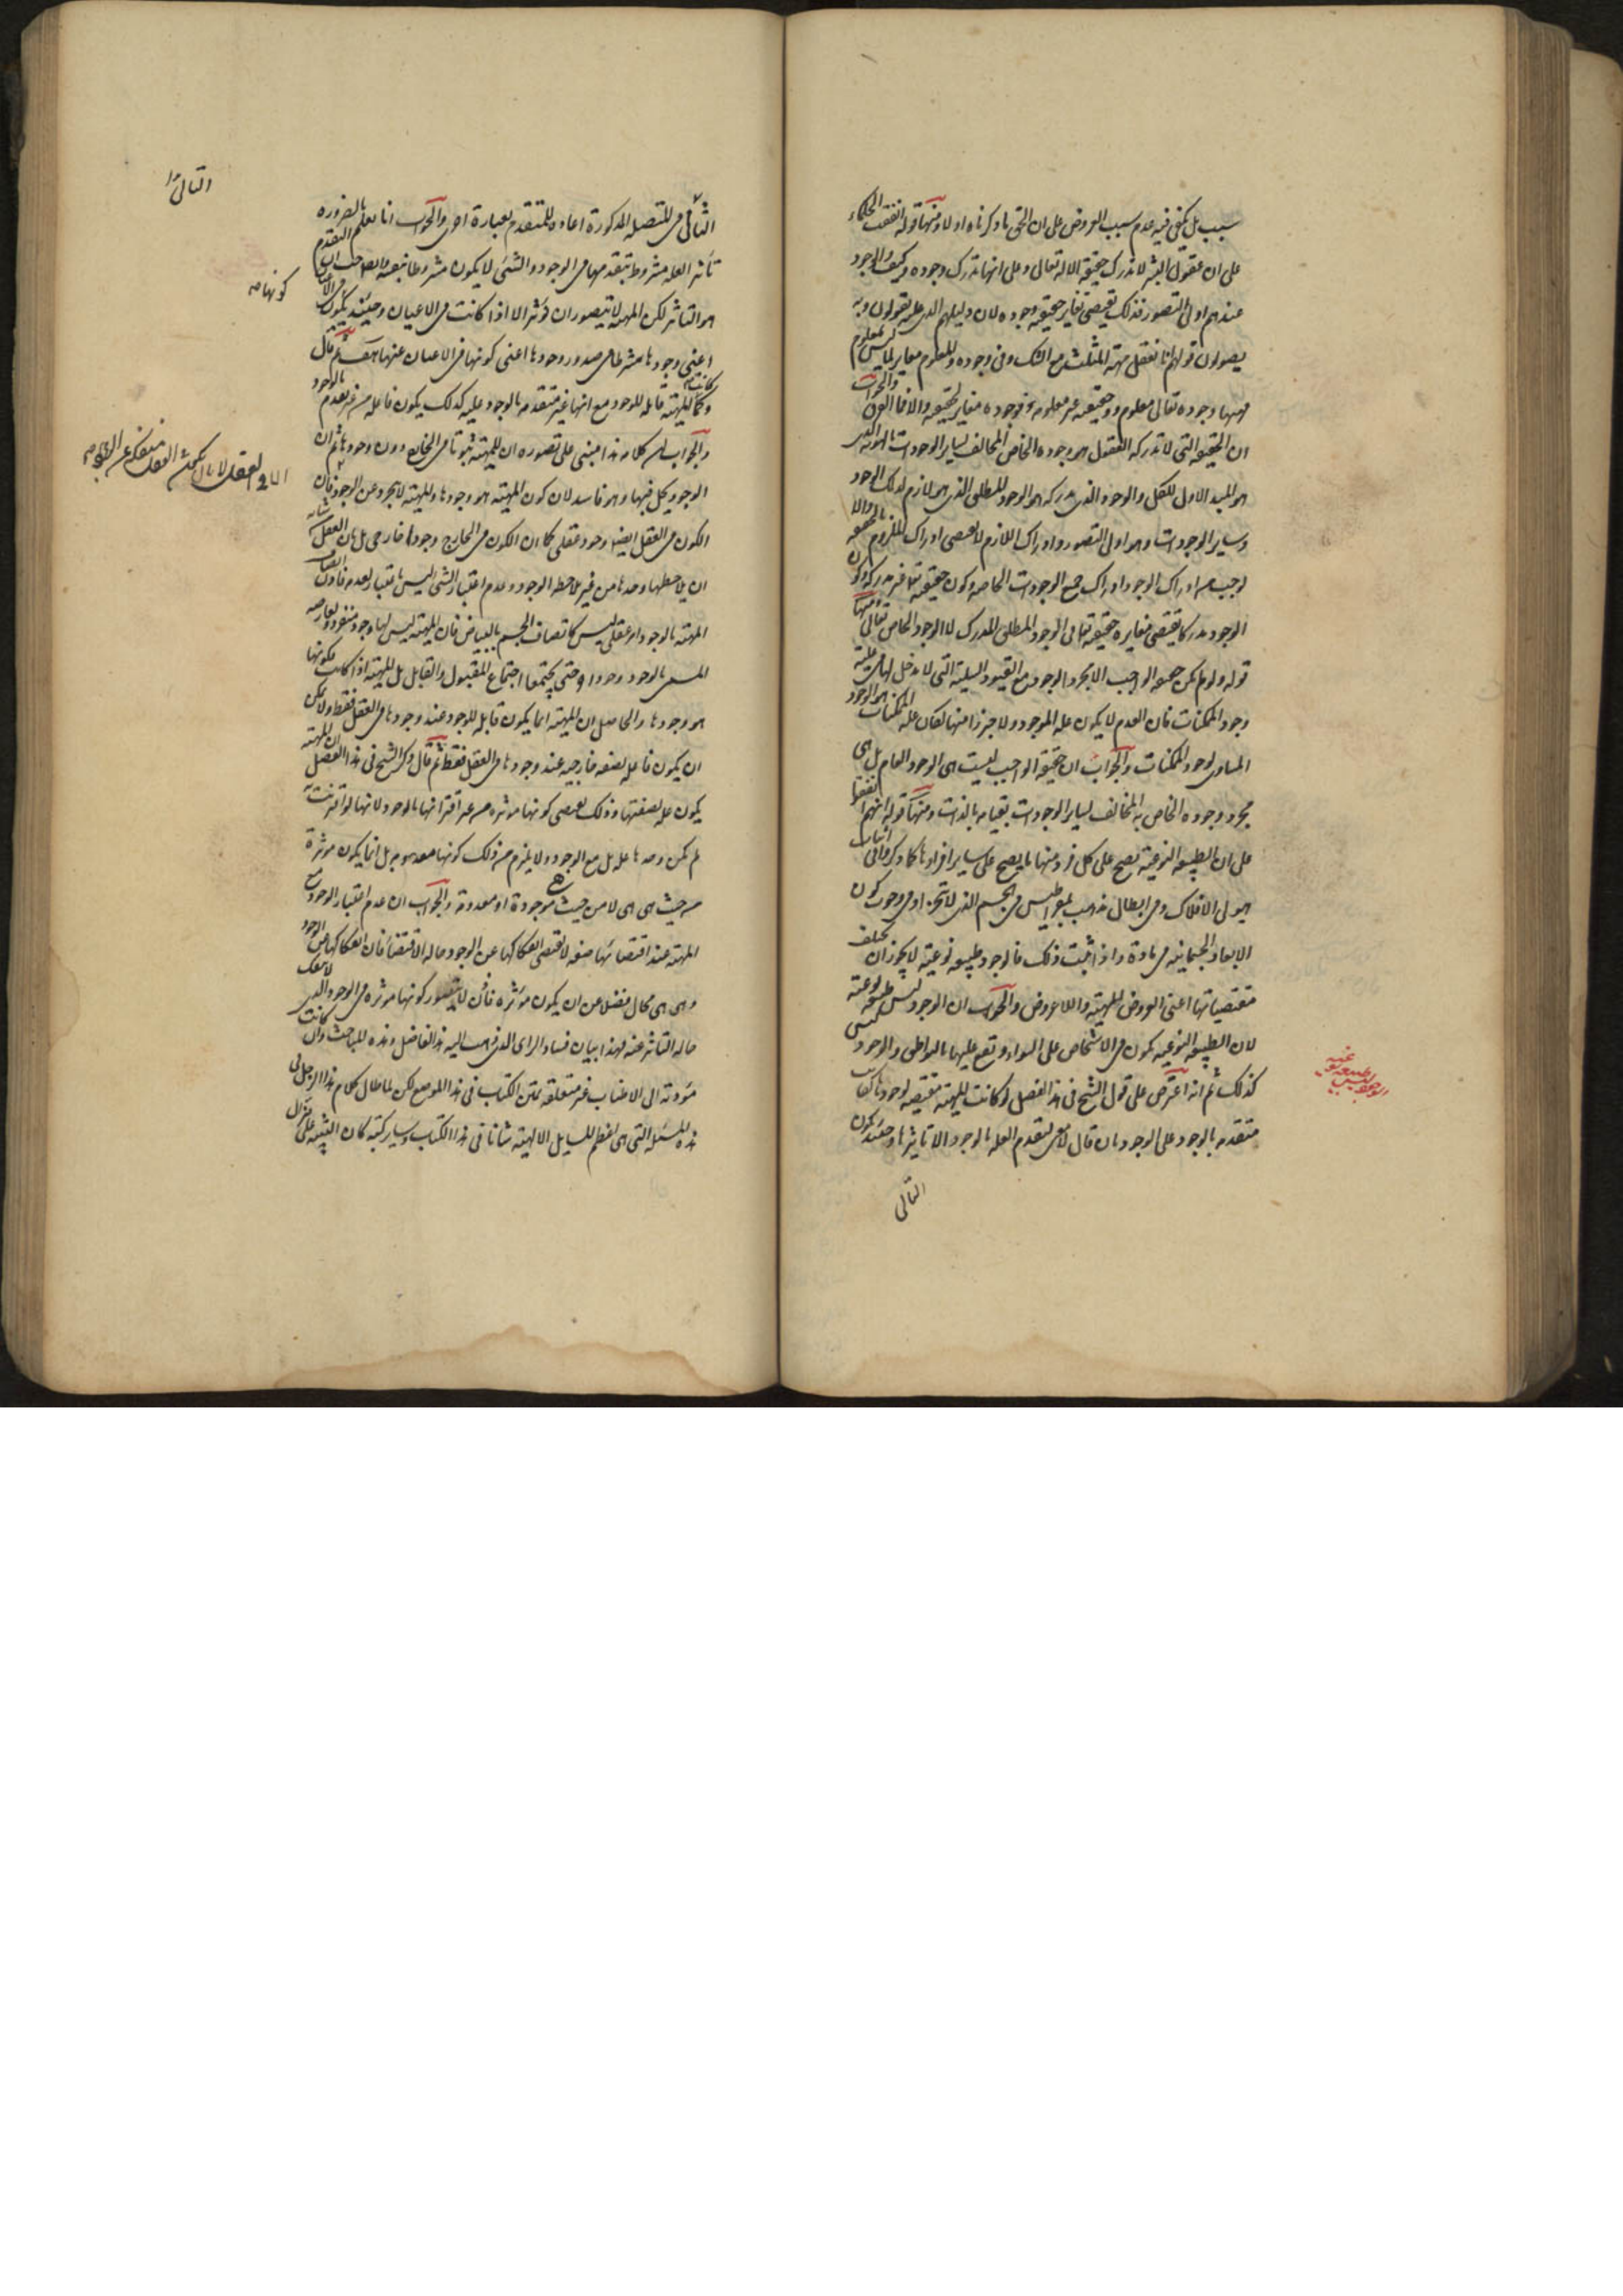 سبب بل يكفى فيه عدم سبب العروض على ان الحق ما ذكرناه اولا ومنها قوله اتفقت الحكماء
على ان عقول البشر لا تدرك حقيقة الاله تعالى وعلى انها تدرك وجوده وكيف والوجود
عندهم اولى التصور فذلك يقتضى تغاير حقيقته ووجوده لان دليلهم الذى عليه يعولون وبه
يصولون قولهم انا نعقل مهية المثلث مع الشك فى وجوده والمعلوم مغاير لما ليس بمعلوم
فههنا وجوده تعالى معلوم وحقيقته غير معلومة فوجوده مغاير لحقيقته والا فما الفرق والجواب
ان الحقيقة التى لا تدركه العقول هو وجوده الخاص المخالف لساير الوجودات بالهوية الذى
هو المبدء الاول للكل والوجود الذى تدركه هو الوجود المطلق الذى هو لازم لذلك الوجود
وساير الوجودات وهو اولى التصور وادراك اللازم لا يقتضى ادراك الملزوم بالحقيقة والا
لوجب من ادراك الوجود ادراك جميع الوجودات الخاصة وكون حقيقته تعالى غير مدركة وكون
الوجود مدركا يقتضى مغايرة حقيقته تعالى للوجود المطلق المدرك لا الوجود الخاص تعالى ومنها
قوله ولو لم يكن حقيقة الواجب الا مجرد الوجود مع القيود السلبية التى لا مدخل لها فى علية
وجود الممكنات فان العدم لا يكون علة الموجود ولا جزءا منها لكان علة الممكنات هو الوجود
المساوى لوجود الممكنات والجواب ان حقيقة الواجب ليست هى الوجود العام بل هى
مجرد وجوده الخاص به المخالف لساير الوجودات بقيامه بالذات ومنها قوله انهم اتفقوا
على ان الطبيعة النوعية يصح على كل فرد منها ما يصح على ساير افرادها كما ذكروا فى اثبات
هيولى الافلاك وفى ابطال مذهب ذيمقراطيس فى الجسم الذى لا يتجزء او فى وجوب كون
الابعاد الجسمانية فى مادة واذا ثبت ذلك فالوجود طبيعة نوعية لا يجوز ان تختلف
مقتضياتها اعنى العروض للمهية واللاعروض والجواب ان الوجود ليس طبيعة نوعية
لان الطبيعة النوعية تكون فى الاشخاص على السواء وتقع عليها بالتواطى والوجود ليس
كذلك ثم انه اعترض على قول الشيخ فى هذا الفصل لو كانت المهية مقتضية لوجودها لكانت
متقدمة بالوجود على الوجود بان قال لا معنى لتقدم العلة بالوجود الا تاثيرها وحينئذ يكون
التالى
الوجود ليس طبيعة نوعية
الثانى فى المتصلة المذكورة اعادة للمتقدم بعبارة اخرى والجواب انا نعلم بالضرورة
تأثير العلة مشروط بتقدمها فى الوجود والشىء لا يكون مشروطا بنفسه والصاحب التقدم
هو التاثير لكن المهية لا يتصور ان تؤثر الا اذا كانت فى الاعيان وحينئذ يكون
اعنى وجودها مشرطا فى صدور وجودها اعنى كونها فى الاعيان عنها هف ثم قال
وكما كانت المهية قابلة للوجود مع انها غير متقدمة بالوجود عليه كذلك يكون فاعلة من غير تقدم بالوجود
والجواب ان كلامه هذا مبنى على تصوره ان للمهية ثبوتا فى الخارج دون وجودها ثم ان
الوجود يحل فيها وهو فاسد لان كون المهية هو وجودها والمهية لا تجرد عن الوجود فان
الكون فى العقل ايضا وجود عقلى كما ان الكون فى الخارج وجود خارجى بل بان العقل شانه
ان يلاحظها وحدها من غير ملاحظة الوجود وعدم اعتبار الشىء ليس باعتبار لعدمه فاذن اتصاف
المهية بالوجود امر عقلى ليس كاتصاف الجسم بالبياض فان المهية ليس لها وجود منفرد ولعارضه
المسمى بالوجود وجود اخر حتى يجتمعا اجتماع المقبول والقابل بل المهية اذا كانت فكونها
هو وجودها والحاصل ان المهية انما يكون قابلة للوجود عند وجودها فى العقل فقط ولا يمكن
ان يكون فاعلة لصفة خارجية عند وجودها فى العقل فقط ثم قال وذكر الشيخ فى هذا الفصل ان المهية
يكون علة لصفتها وذلك يقتضى كونها مؤثرة من غير اقترانها بالوجود لانها لو اقترنت
لم تكن وحدها علة بل مع الوجود ولا يلزم من ذلك كونها معدومة بل انما يكون مؤثرة
من حيث هى هى لا من حيث هى موجودة او معدومة والجواب ان عدم اعتبار الوجود مع
المهية عند اقتضائها صفة لا يقتضى انفكاكها عن الوجود حالة الاقتضاء فان انفكاكها عن الوجود
وهى هى محال فضلا عن ان يكون مؤثرة فاذن لا يتصور كونها مؤثرة فى الوجود الذى لا ينفك
حالة التاثير عنه فهذا بيان فساد الراى الذى ذهب اليه هذا الفاضل وهذه المباحث وان كانت
مؤدية الى الاطناب غير متعلقة بمتن الكتاب فى هذا الموضع لكن لما طال كلام هذا الرجل فى
هذه المسئلة التى هى اعظم المسايل الالهية شانا فى هذا الكتاب وساير كتبه كان التنبيه على مزال
التالى
كونها